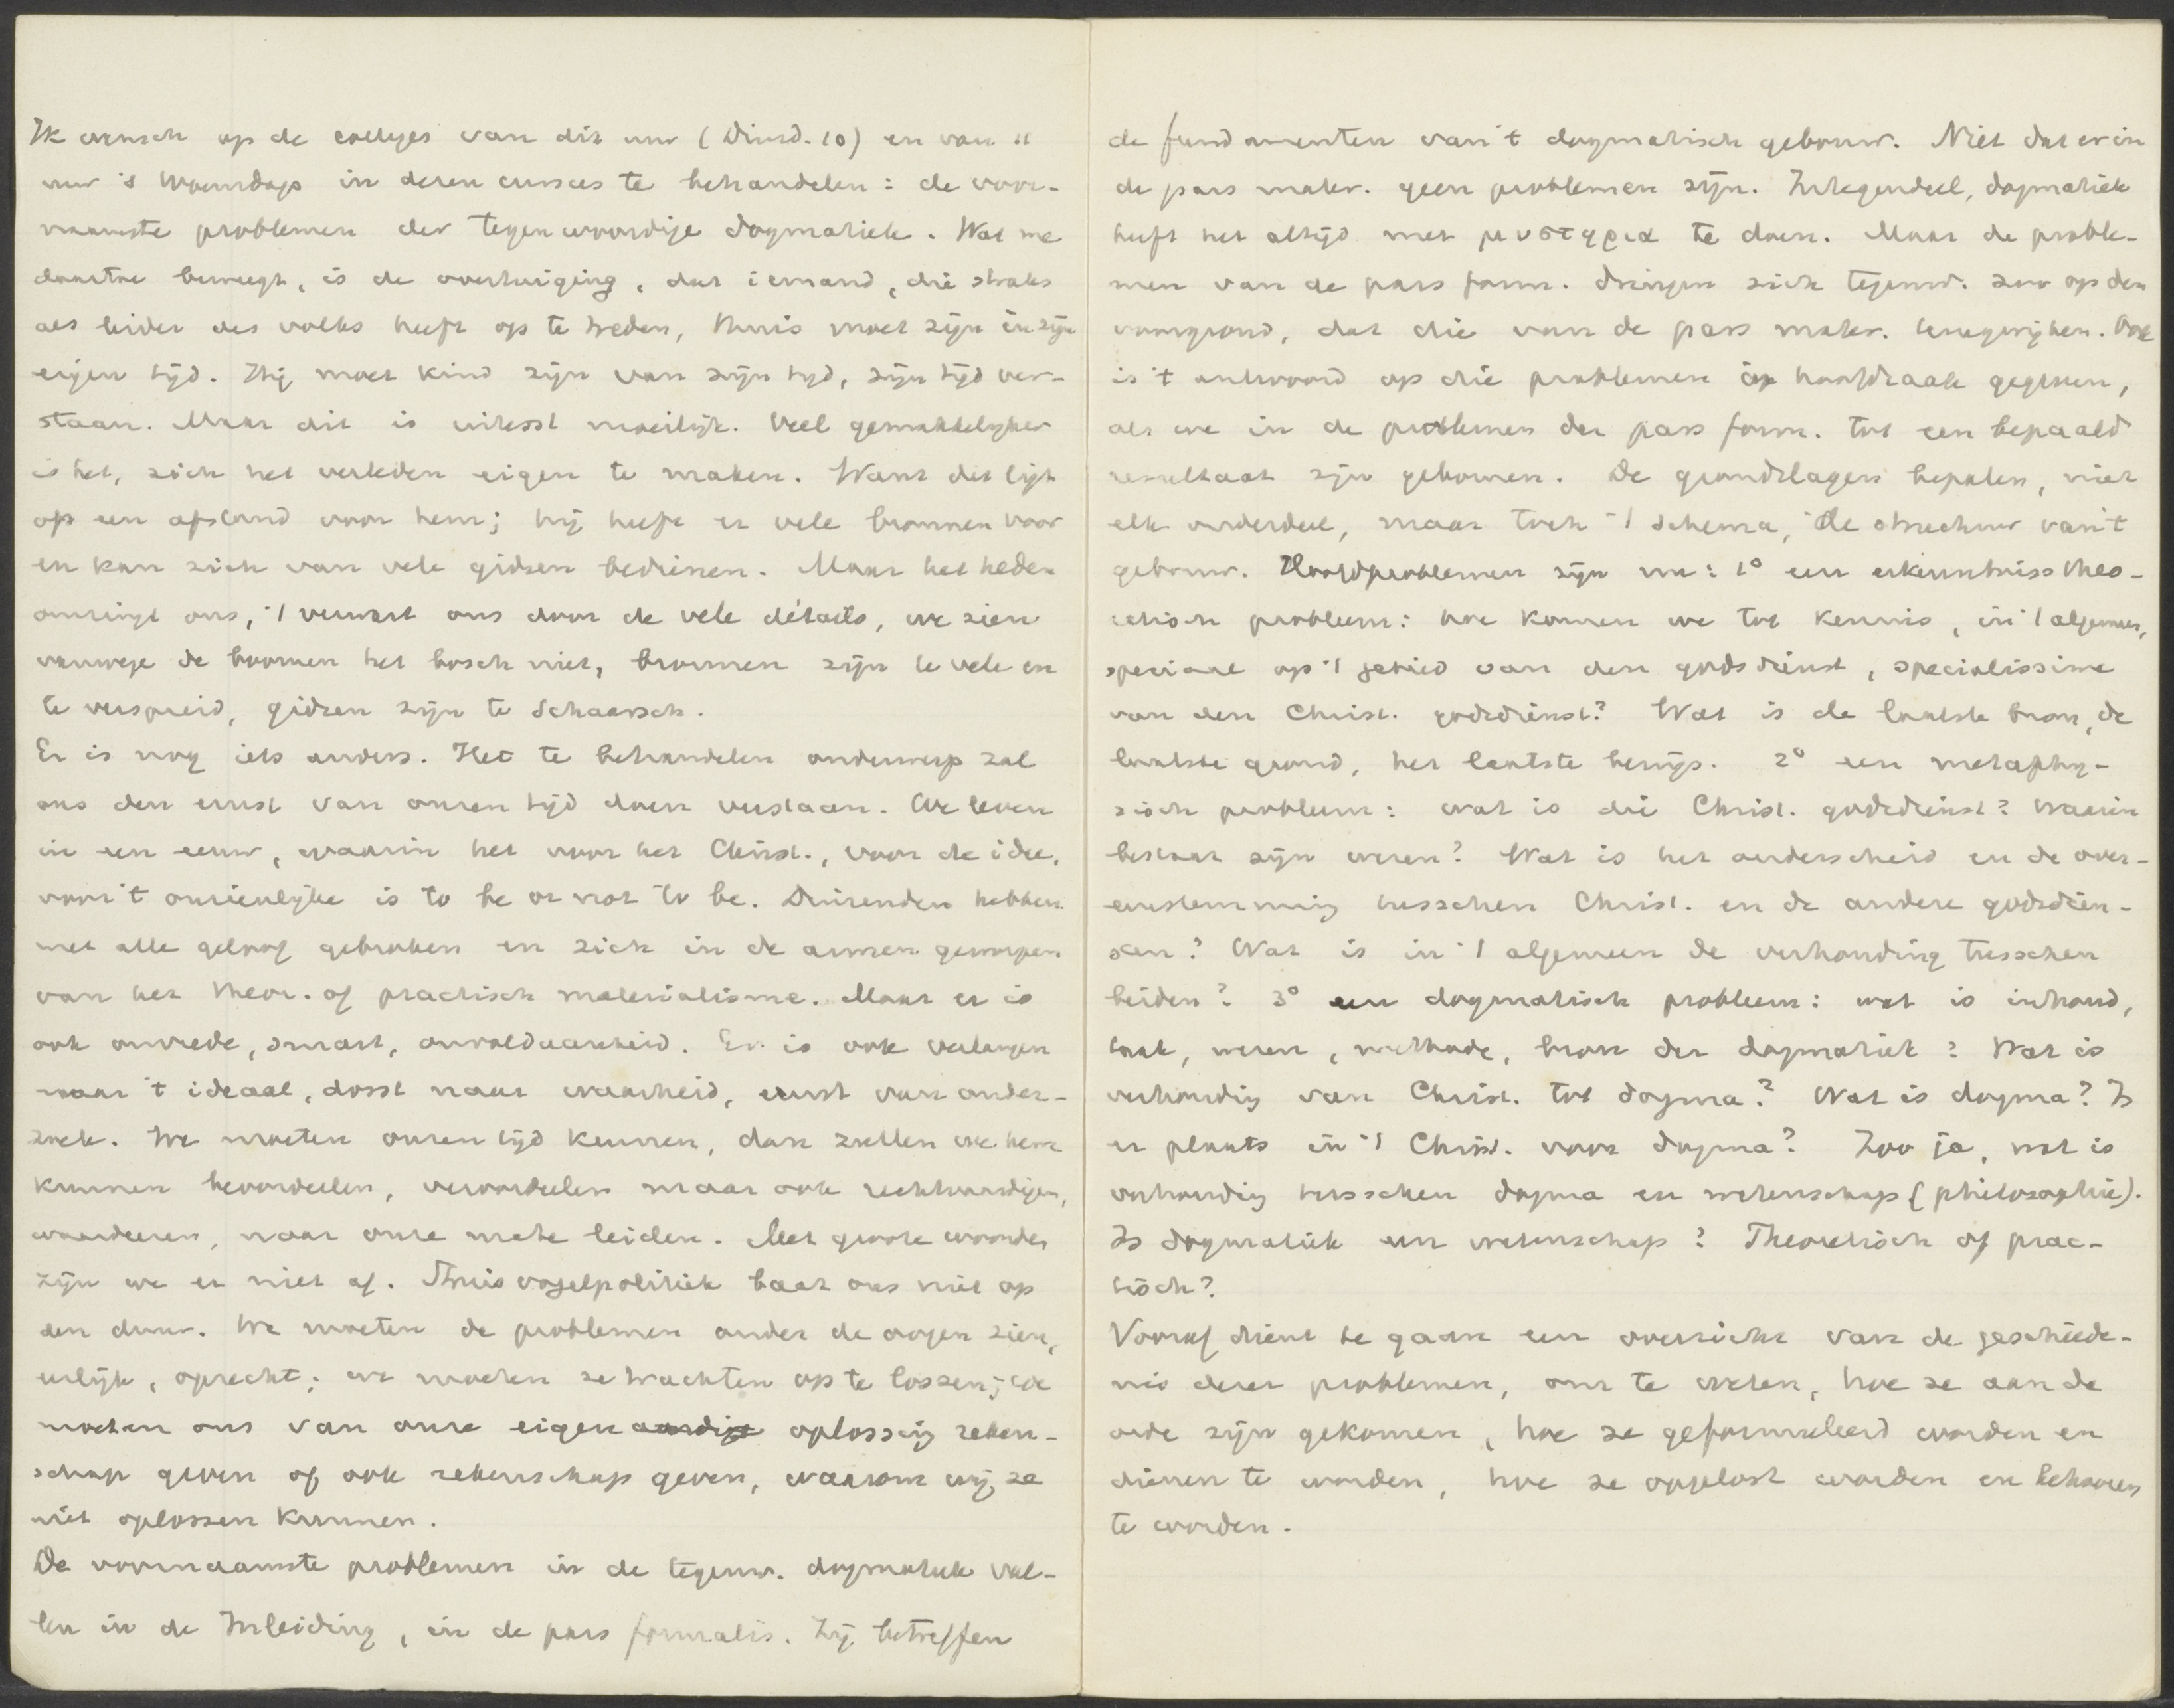 Ik wensch op de colleges van dit uur (Dinsd. 10) en van 11
uur 's Woensdags in dezen cursus te behandelen: de voor-
naamste problemen der tegenwoordige dogmatiek. Wat me
daartoe beweegt, is de overtuiging, dat iemand, die straks
als leider des volks heeft op te treden, thuis moet zijn in zijn
eigen tijd. Hij moet kind zijn van zijn tijd, zijn tijd ver-
staan. Maar dit is uiterst moeilijk. Veel gemakkelijker
is het, zich het verleden eigen te maken. Want dit ligt
op een afstand voor hem; hij heeft er vele bronnen voor
en kan zich van vele gidsen bedienen. Maar het heden
omringt ons, 't verwart ons door de vele détails, we zien
vanwege de boomen het bosch niet, bronnen zijn te vele en
te verspreid, gidsen zijn te schaarsch.
Er is nog iets anders. Het te behandelen onderwerp zal
ons den ernst van onzen tijd doen verstaan. We leven
in een eeuw, waarin het voor het Christ., voor de idee,
voor 't onzienlijke is to be or not to be. Duizenden hebben
met alle geloof gebroken en zich in de armen geworpen
van het theor. of practisch materialisme. Maar er is
ook onvrede, smart, onvoldaanheid. Er is ook verlangen
naar 't ideaal, dorst naar waarheid, ernst van onder-
zoek. We moeten onzen tijd kennen, dan zullen we hem
kunnen beoordeelen, veroordeelen maar ook rechtvaardigen,
waardeeren, naar onze mate leiden. Met groote woorden
zijn we er niet af. Struisvogelpolitiek baat ons niet op
den duur. We moeten de problemen onder de oogen zien,
eerlijk, oprecht; we moeten ze trachten op te lossen; we
moeten ons van onze eigen aardige oplossing reken-
schap geven of ook rekenschap geven, waarom wij ze
niet oplossen kunnen.
De voornaamste problemen in de tegenw. dogmatiek val-
len in de Inleiding, in de pars formalis. Zij betreffen
de fundamenten van 't dogmatisch gebouw. Niet dat er in
de pars mater. geen problemen zijn. Integendeel, dogmatiek
heeft het altijd met μυστηρια te doen. Maar de proble-
men van de pars form. dringen zich tegenw. zoo op den
voorgrond, dat die van de pars mater. terugwijken. Ook
is 't antwoord op die problemen in hoofdzaak gegeven,
als we in de problemen der pars form. tot een bepaald
resultaat zijn gekomen. De grondslagen bepalen, niet
elk onderdeel, maar toch 't schema, de structuur van 't
gebouw. Hoofdproblemen zijn nu: 1° een erkenntnisstheo-
retisch probleem: hoe komen we tot kennis, in 't algemeen,
speciaal op 't gebied van den godsdienst, specialissime
van den Christ. godsdienst? Wat is de laatste bron, de
laatste grond, het laatste bewijs. 2° een metaphy-
sisch probleem: wat is die Christ. godsdienst? Waarin
bestaat zijn wezen? Wat is het onderscheid en de over-
eenstemming tusschen Christ. en de andere godsdien-
sten? Wat is in 't algemeen de verhouding tusschen
beiden? 3° een dogmatisch probleem: wat is inhoud,
taak, wezen, methode, bron der dogmatiek? Wat is
verhouding van Christ. tot dogma? Wat is dogma? Is
er plaats in 't Christ. voor dogma? Zoo ja, wat is
verhouding tusschen dogma en wetenschap (philosophie).
Is dogmatiek een wetenschap? Theoretisch of prac-
tisch?
Vooraf dient te gaan een overzicht van de geschiede-
nis dezer problemen, om te weten, hoe ze aan de
orde zijn gekomen, hoe ze geformuleerd worden en
dienen te worden, hoe ze opgelost worden en behooren
te worden.